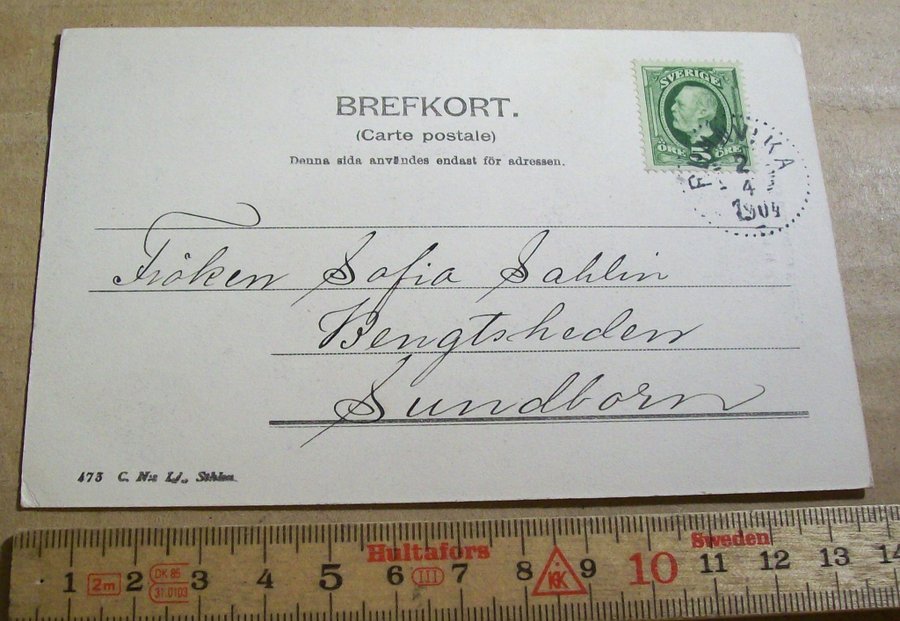 BREFKORT.
(Carte postale)
Denna sida användes endast för adressen.
SVERIGE
ÖRE 5 ÖRE
2
4
1904
Fröken Sofia Sahlin
Bengtsheden
Sundborn
473 C. N:s Lj., Sthlm.
Hultafors
Sweden
1 2m 2 DK 85 3 4 5 6 III 7 8 KK 9 10 11 12 13 14
31.0103